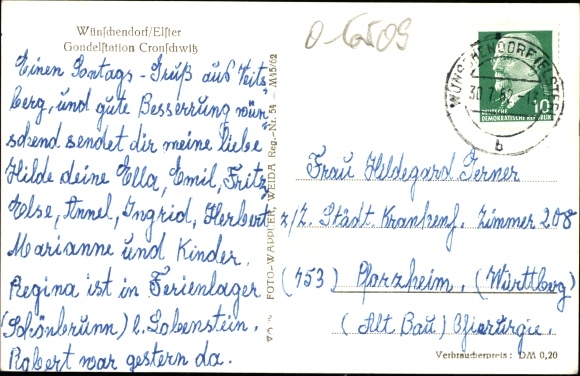 Wünschendorf/Elster
Gondelstation Cronschwitz
Einen Sontags-Gruß aus Veits-
berg, und gute Besserrung wün-
schend sendet dir meine liebe
Hilde deine Ella, Emil, Fritz,
Else, Annel, Ingrid, Herbert
Marianne und Kinder.
Regina ist in Ferienlager
(Schönbrunn) b. Lobenstein.
Robert war gestern da.
FOTO-WAPPLER, WEIDA Reg.-Nr. 54 - M45/62
0-6509
WÜNSCHENDORF (ELSTER)
30.7.62
b
10
DEUTSCHE
DEMOKRATISCHE REPUBLIK
Frau Hildegard Gerner
z/Z. Städt. Krankenh. Zimmer 208
(753) Pforzheim. (Württberg)
(Alt Bau) Chierurgie.
Verbraucherpreis: DM 0,20